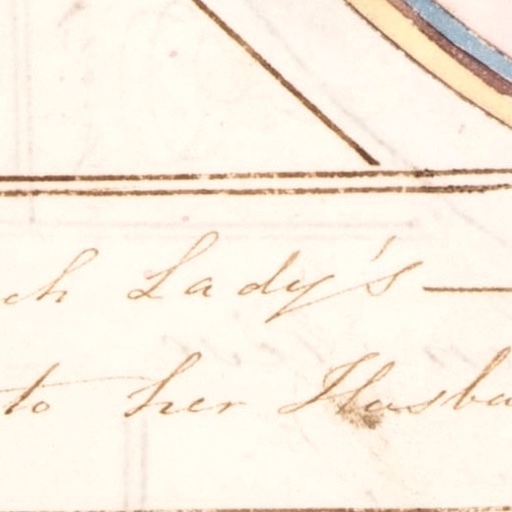 ch Lady's —
to her Husba